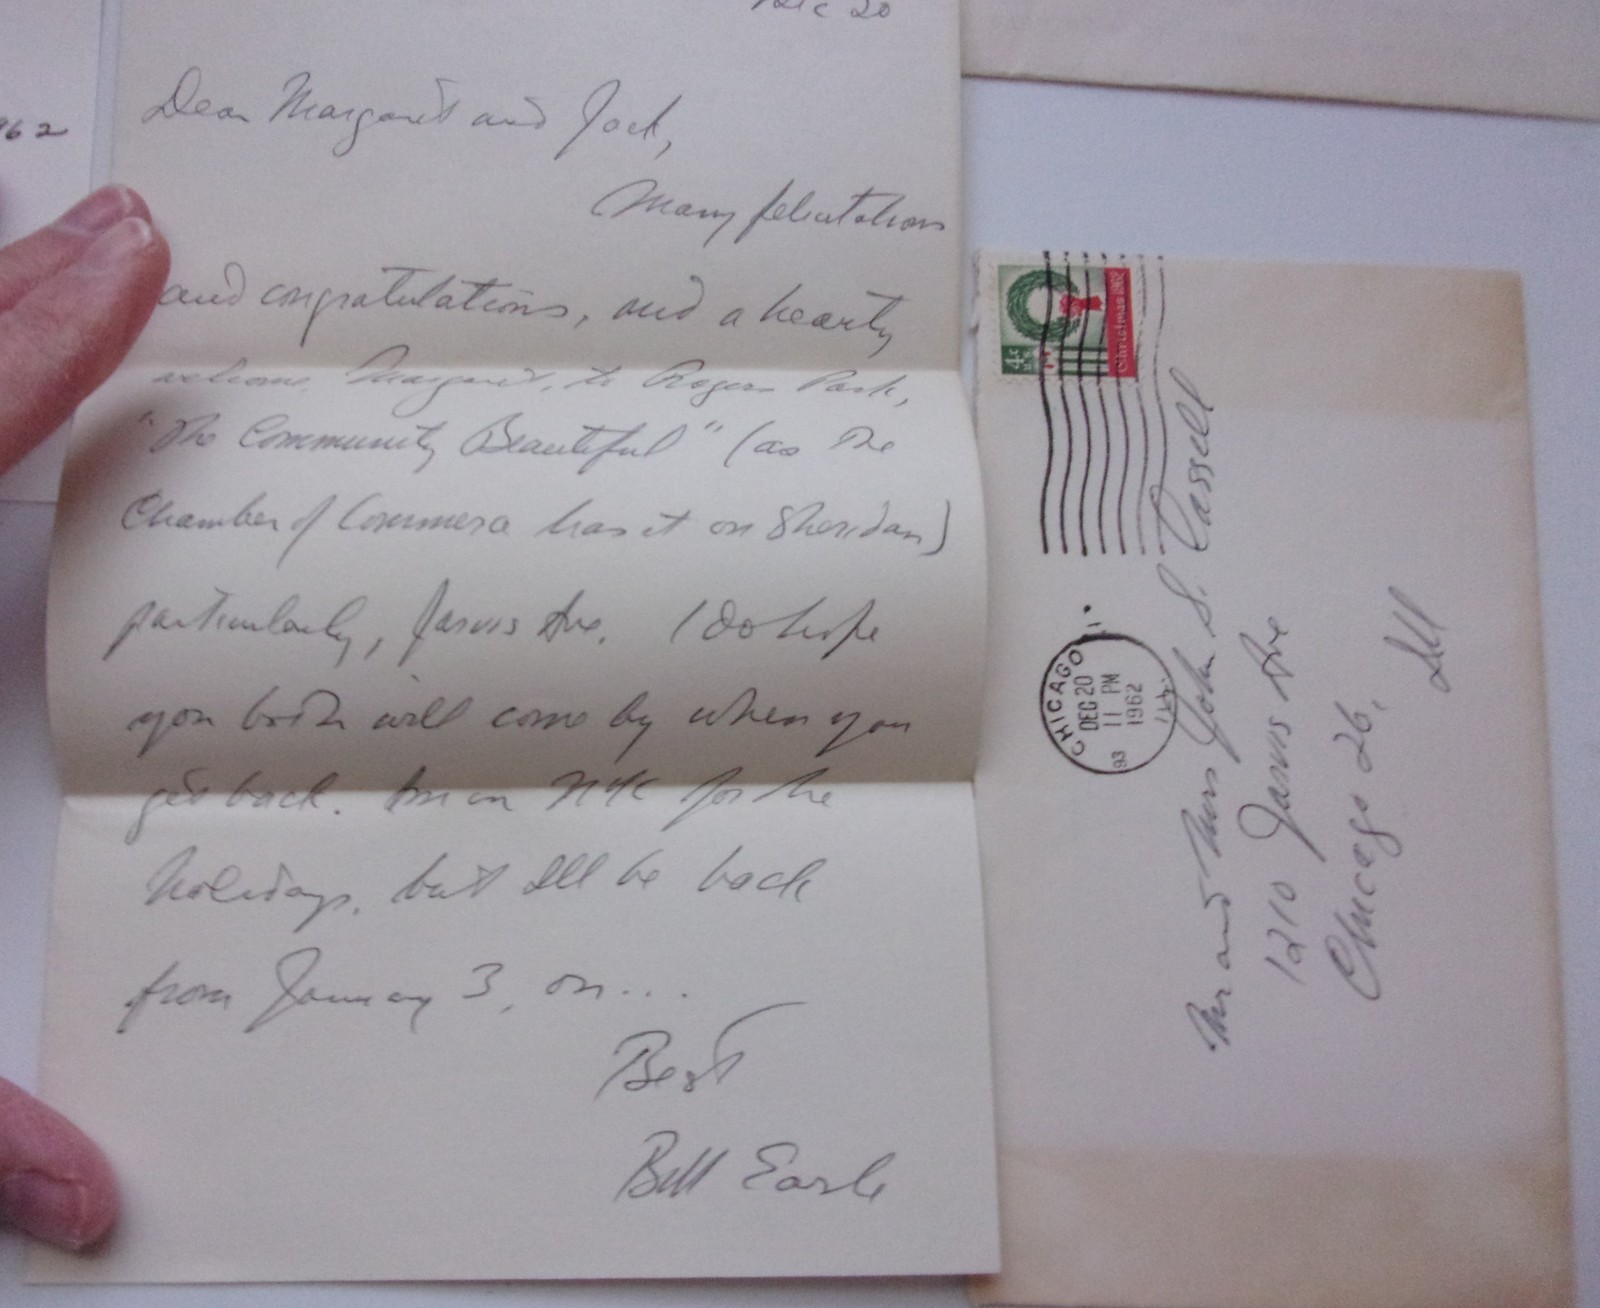 962
Dec 20
Dear Margaret and Jack,
Many felicitations
and congratulations, and a hearty
welcome, Margaret, to Rogers Park,
"The Community Beautiful" (as the
Chamber of Commerce has it on Sheridan)
particularly, Jarvis Ave. I do hope
you both will come by when you
get back. Am in NYC for the
holidays, but I'll be back
from January 3, on...
Best
Bill Earle
4¢
U.S.
Christmas 1962
CHICAGO
DEC 20
11 PM
1962
ILL.
93
Mr and Mrs John S. Cassell
1210 Jarvis Ave
Chicago 26, Ill